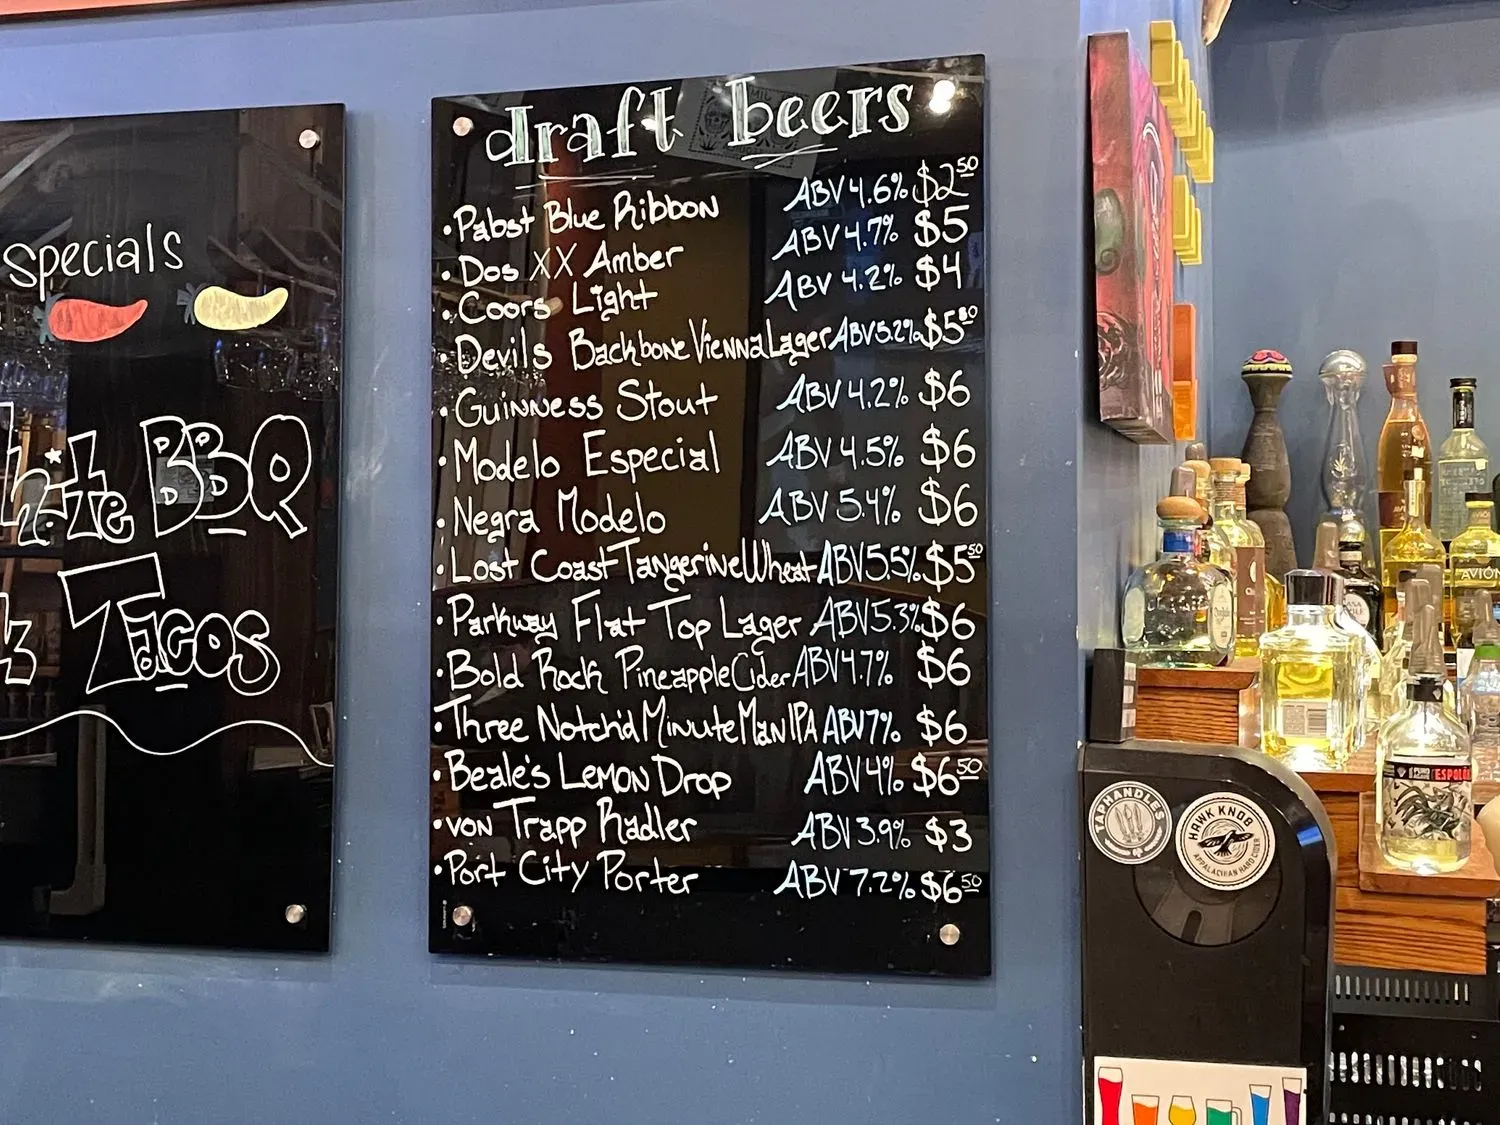 specials
BBQ
Tacos
draft beers
• Pabst Blue Ribbon ABV 4.6% $2.50
• Dos XX Amber ABV 4.7% $5
• Coors Light ABV 4.2% $4
• Devils Backbone Vienna Lager ABV 5.2% $5.50
• Guinness Stout ABV 4.2% $6
• Modelo Especial ABV 4.5% $6
• Negra Modelo ABV 5.4% $6
• Lost Coast Tangerine Wheat ABV 5.5% $5.50
• Parkway Flat Top Lager ABV 5.3% $6
• Bold Rock Pineapple Cider ABV 4.7% $6
• Three Notch'd Minute Man IPA ABV 7% $6
• Beale's Lemon Drop ABV 4% $6.50
• von Trapp Radler ABV 3.9% $3
• Port City Porter ABV 7.2% $6.50
TAPHANDLES
HAWK KNOB
APPALACHIAN HARD CIDER
AVIÓN